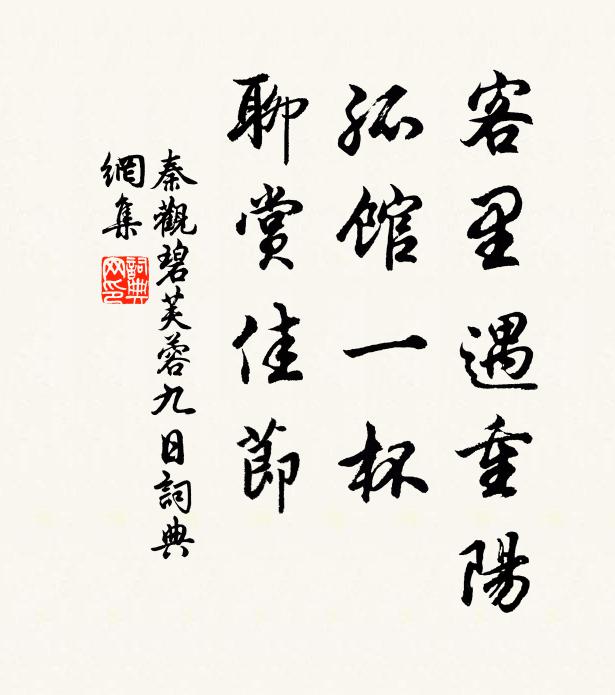 客里遇重陽
孤館一杯
聊賞佳節
秦觀碧芙蓉九日詞典
網集
詞典
網印